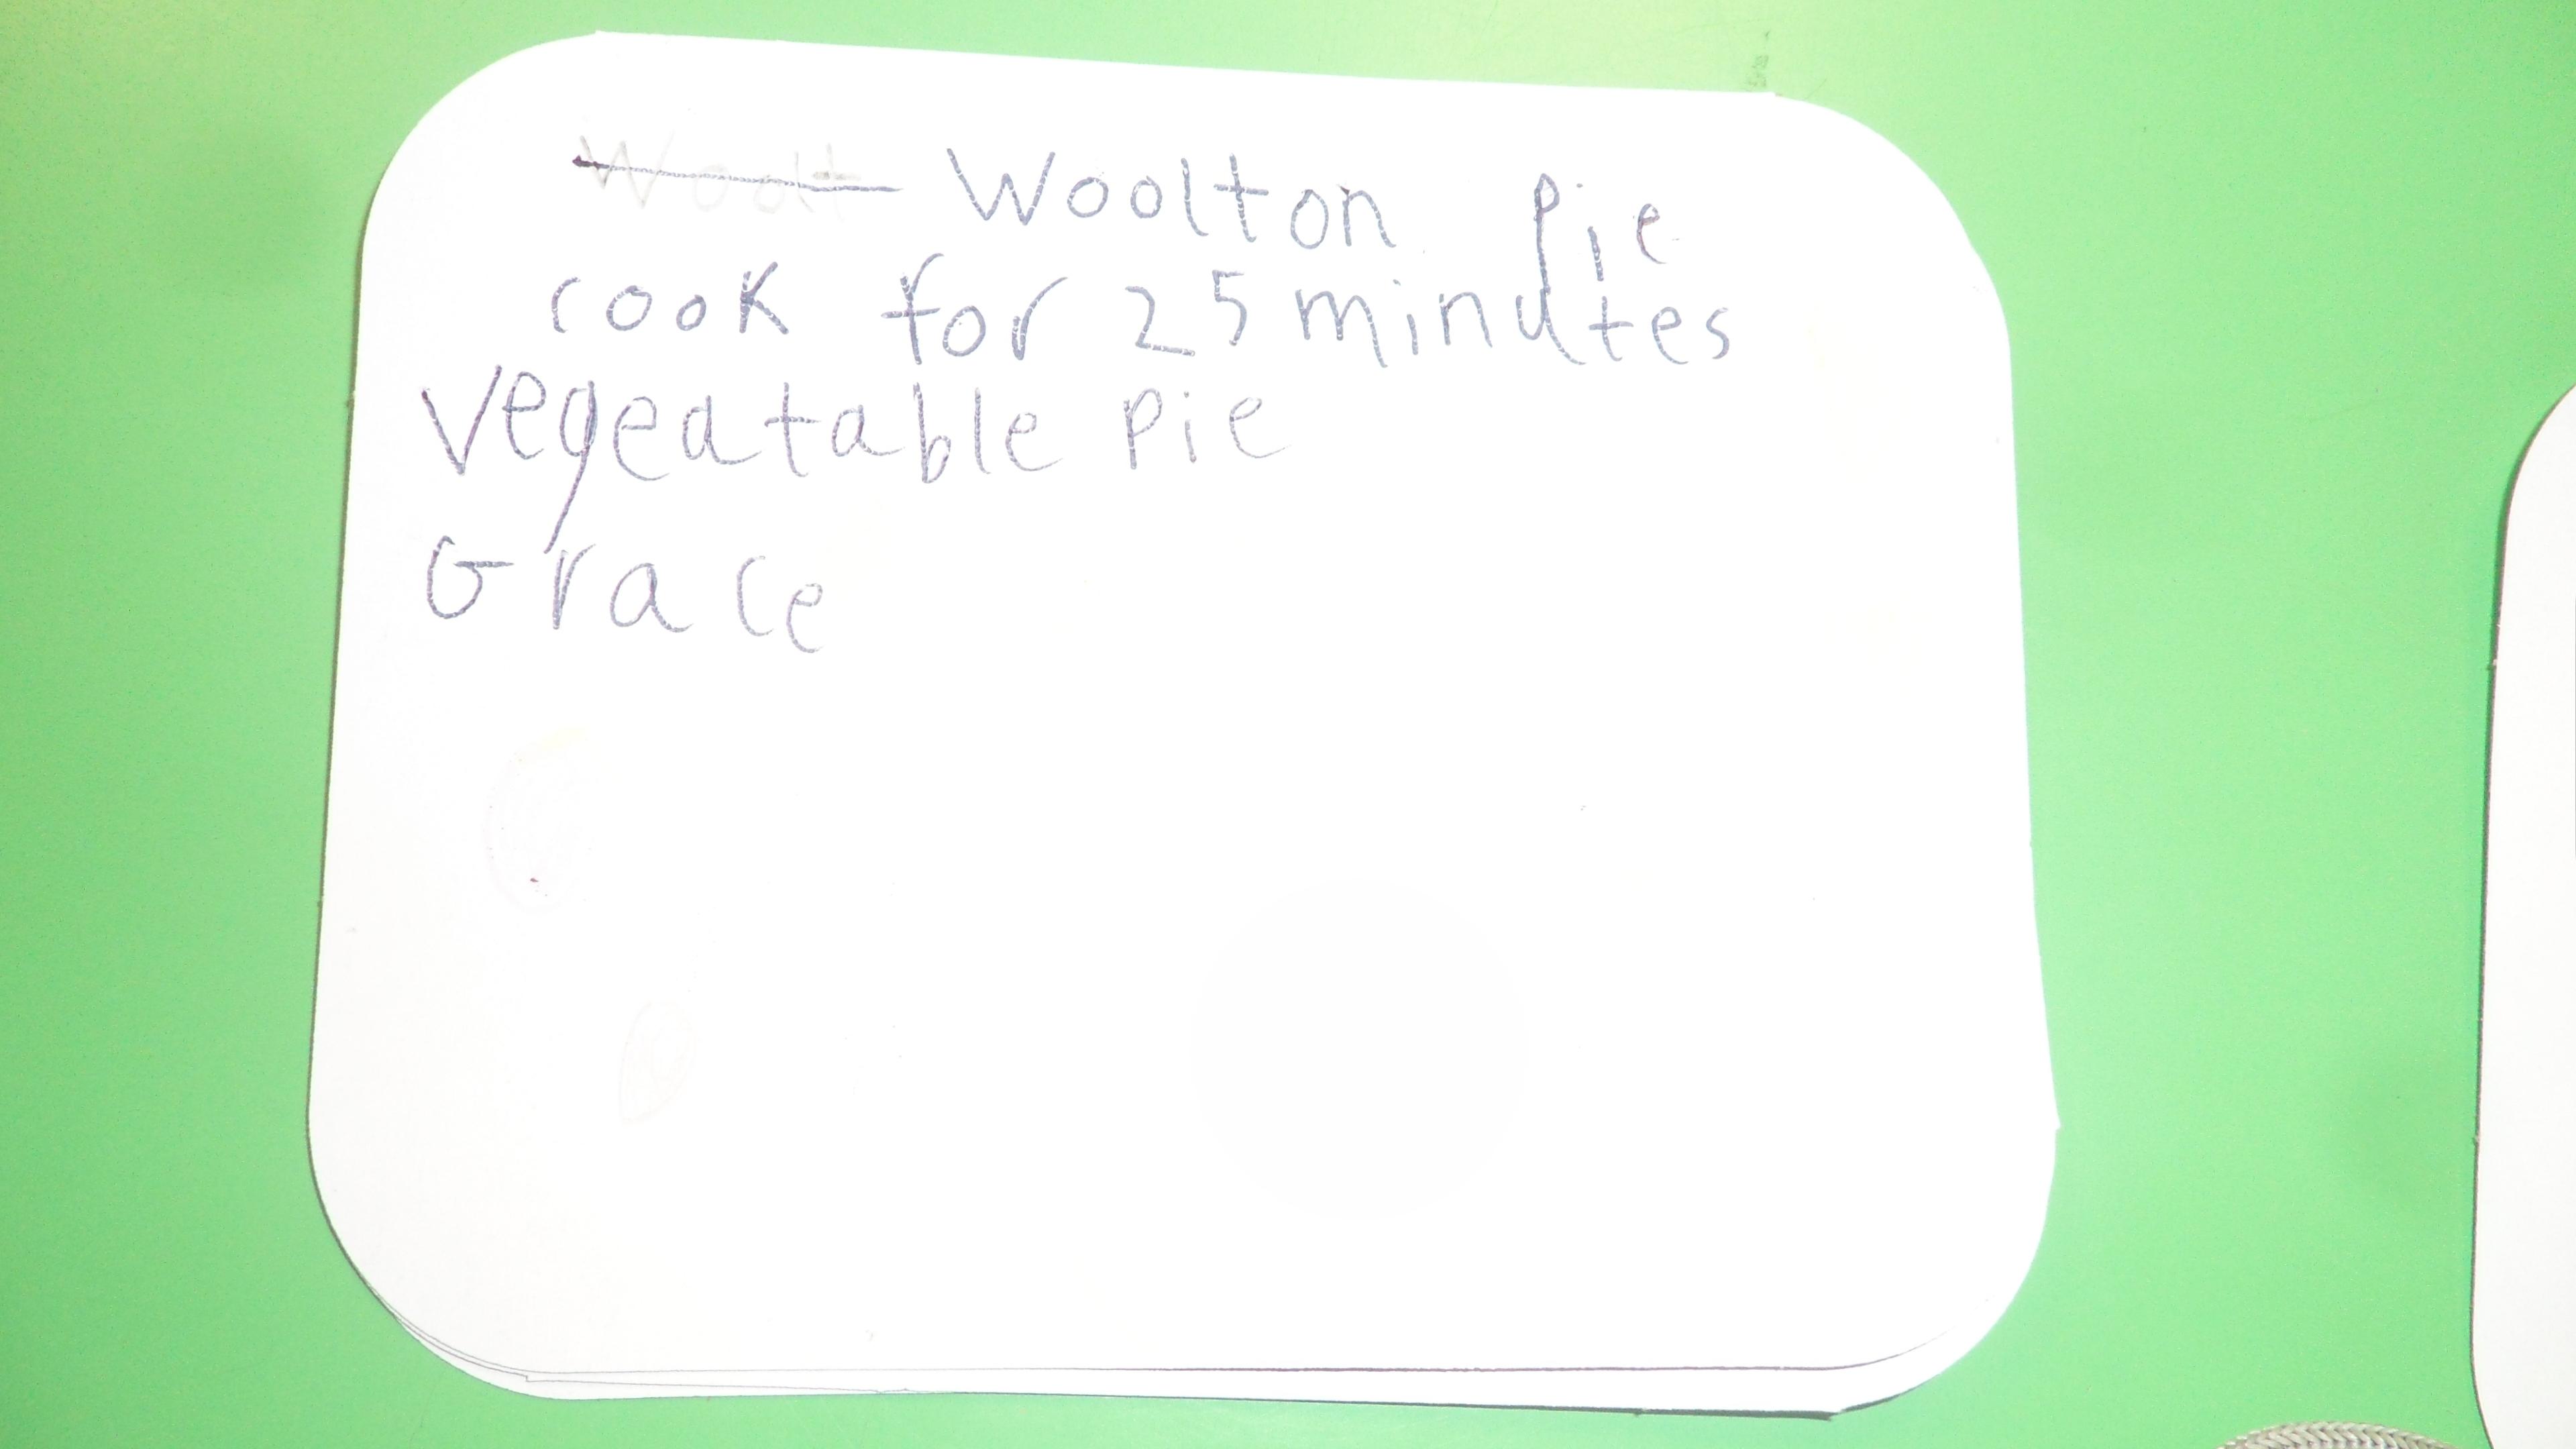 Woolt Woolton Pie
cook for 25 minutes
vegeatable pie
Grace